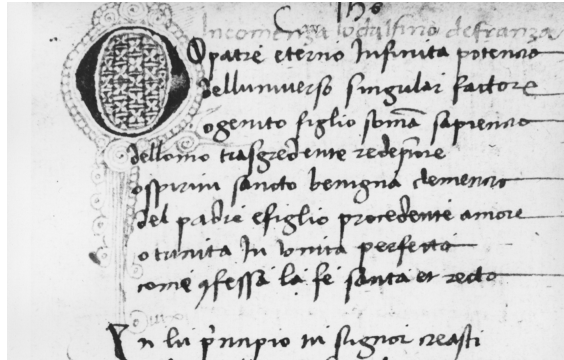 yhs
Incomenza lo dalfino de franza
O patre eterno Infinita potencia
delluniverso singular factore
o genito figlio somā sapiencia
dellomo trasgredente redēptore
o spiritu sancto benigna clemencia
del padre e figlio procedente amore
o trinita In unita perfecta
come ꝯfessa la fe santa et recta
In lu pͥncipio tu signor creasti